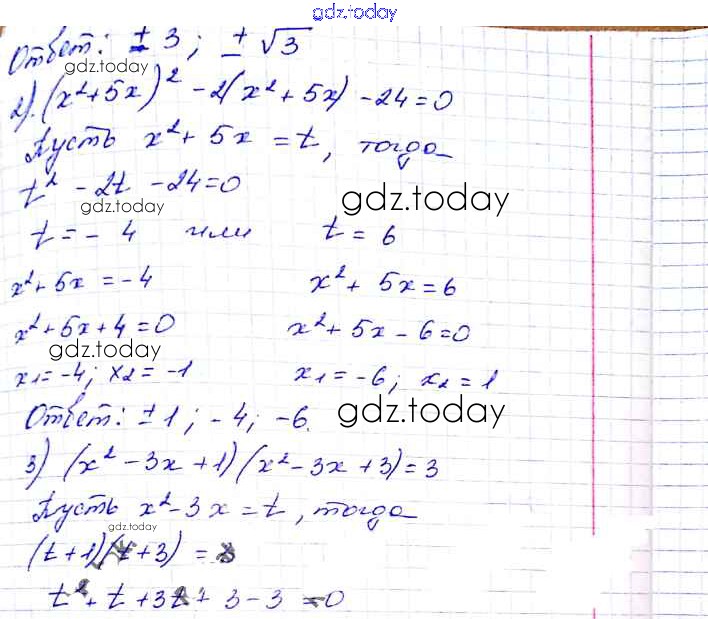 gdz.today
Ответ: ± 3; ± √3
gdz.today
2). (x²+5x)² - 2(x²+5x) - 24=0
Пусть x²+5x=t, тогда
t² - 2t - 24=0
gdz.today
gdz.today
t = - 4 или t = 6
x²+5x = -4 x²+ 5x=6
x²+5x+4=0 x²+5x-6=0
gdz.today
x1=-4; x2= -1 x1=-6; x2=1
Ответ: ±1; -4; -6.
gdz.today
3) (x²-3x+1)(x²-3x+3)=3
Пусть x²-3x=t, тогда
gdz.today
(t+1)(t+3) = 3
t²+t+3t+3-3=0